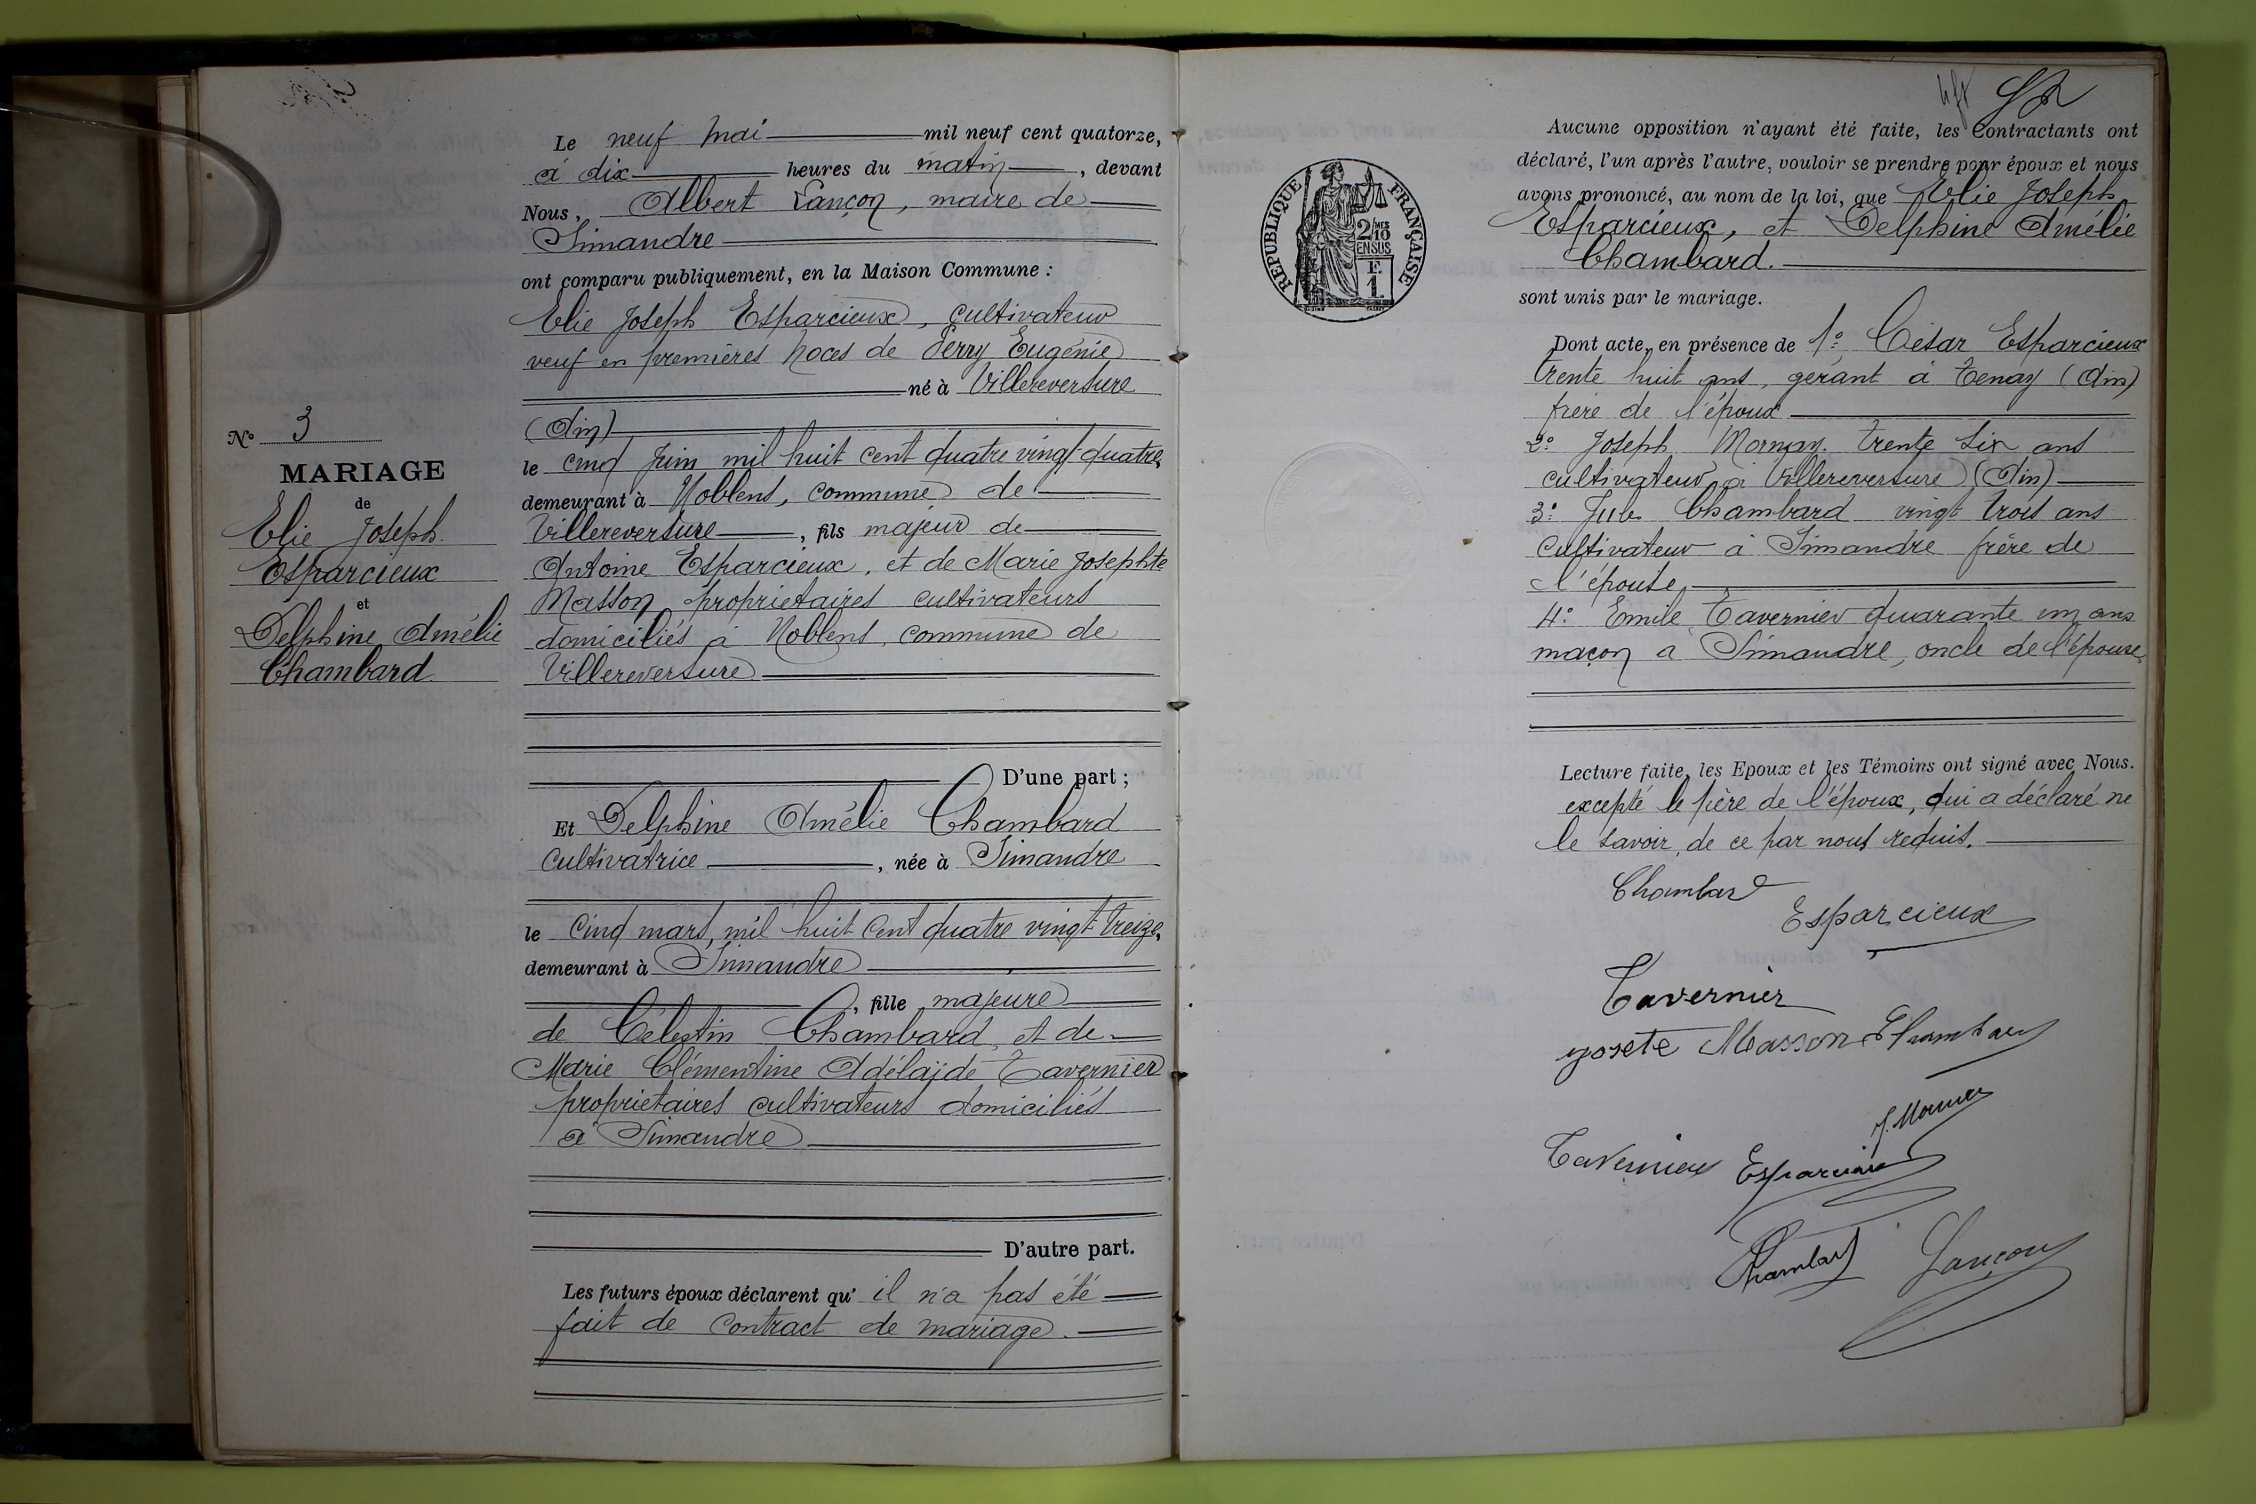 Le neuf mai mil neuf cent quatorze,
à dix heures du matin, devant
Nous, Albert Lançon, maire de
Simandre
ont comparu publiquement, en la Maison Commune :
Elie Joseph Esparcieux, cultivateur
veuf en premières noces de Perry Eugénie
né à Villereversure
(Ain)
le cinq juin mil huit cent quatre vingt quatre,
demeurant à Noblens, commune de
Villereversure, fils majeur de
Antoine Esparcieux, et de Marie Josephte
Masson propriétaires cultivateurs
domiciliés à Noblens, commune de
Villereversure
D'une part ;
Et Delphine Amélie Chambard
cultivatrice, née à Simandre
le cinq mars, mil huit cent quatre vingt treize,
demeurant à Simandre
, fille majeure
de Célestin Chambard, et de
Marie Clémentine Adélaïde Tavernier
propriétaires cultivateurs domiciliés
à Simandre
D'autre part.
Les futurs époux déclarent qu' il n'a pas été
fait de contract de mariage.
N° 3
MARIAGE
de
Elie Joseph
Esparcieux
et
Delphine Amélie
Chambard
RÉPUBLIQUE FRANÇAISE
2/10 MES
EN SUS
F.
1.
Aucune opposition n'ayant été faite, les Contractants ont
déclaré, l'un après l'autre, vouloir se prendre pour époux et nous
avons prononcé, au nom de la loi, que Elie Joseph
Esparcieux, et Delphine Amélie
Chambard.
sont unis par le mariage.
Dont acte, en présence de 1° César Esparcieux
trente huit ans, gérant à Tenay (Ain)
frère de l'époux
2° Joseph Mornay trente six ans
cultivateur à Villereversure (Ain)
3° Jules Chambard vingt trois ans
cultivateur à Simandre frère de
l'épouse
4° Emile Tavernier quarante un ans
maçon à Simandre, oncle de l'épouse
Lecture faite, les Epoux et les Témoins ont signé avec Nous.
excepté le père de l'époux, qui a déclaré ne
le savoir, de ce par nous requis.
Chambard
Esparcieux
Tavernier
yosete Masson Chambard
Tavernier Esparcieux
Chambard Lançon